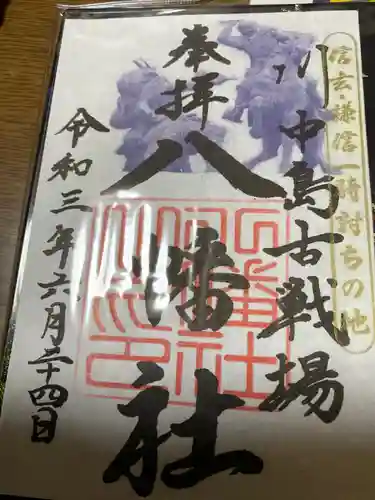 信玄・謙信一騎討ちの地
川中島古戦場
奉拝
八幡社
令和三年六月二十四日